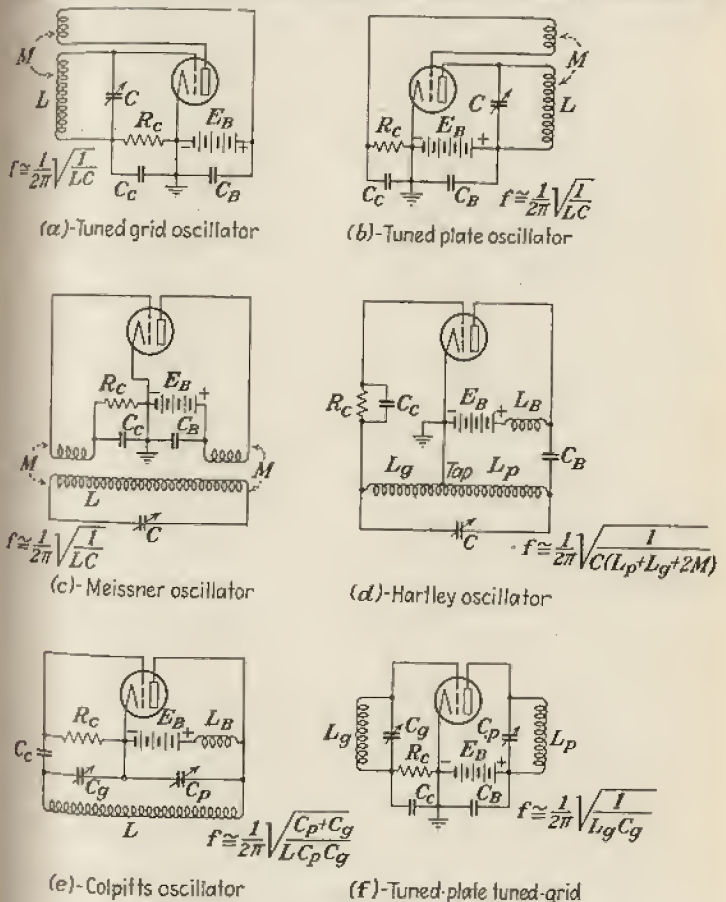 M
L
C
R_C
E_B
- +
C_C
C_B
f≅1/2π√1/LC
(a)-Tuned grid oscillator
M
C
L
R_C
E_B
- +
C_C
C_B
f≅1/2π√1/LC
(b)-Tuned plate oscillator
R_C
E_B
- +
C_C
C_B
M
M
L
C
f≅1/2π√1/LC
(c)-Meissner oscillator
R_C
C_C
E_B
- +
L_B
C_B
L_g
Tap
L_p
C
f≅1/2π√1/C(L_p+L_g+2M)
(d)-Hartley oscillator
R_C
E_B
- +
L_B
C_C
C_g
C_p
L
f≅1/2π√C_p+C_g/LC_pC_g
(e)-Colpitts oscillator
L_g
C_g
C_p
L_p
R_C
E_B
- +
C_C
C_B
f≅1/2π√1/L_gC_g
(f)-Tuned-plate tuned-grid